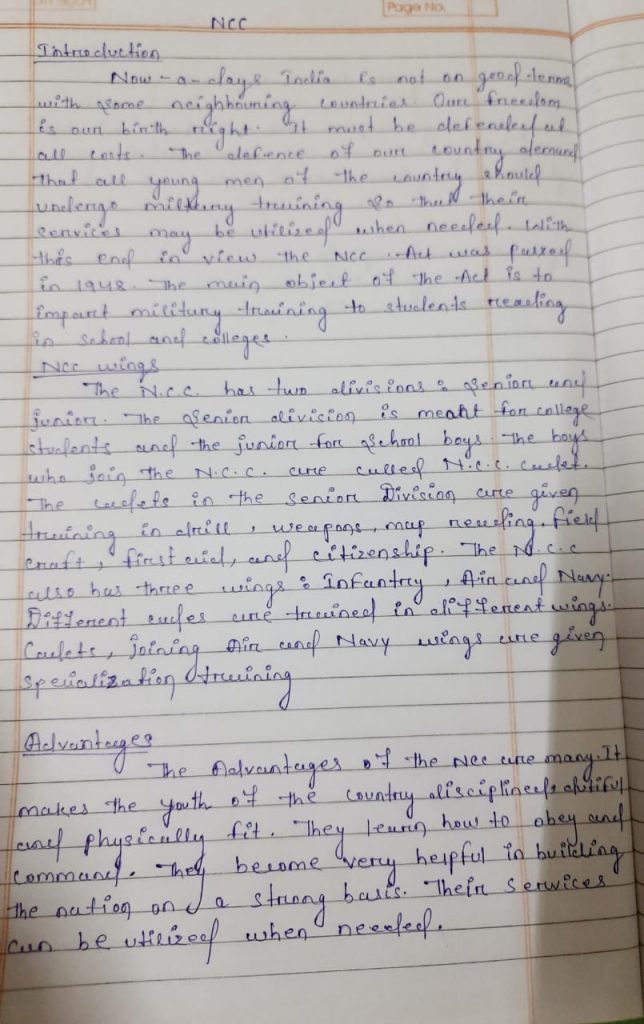 Page No.
NCC
Introduction
Now-a-days India is not on good terms
with some neighbouring countries. Our freedom
is our birth right. It must be defended at
all costs. The defence of our country demand
that all young men of the country should
undergo military training so that their
services may be utilized when needed. With
this end in view the NCC Act was passed
in 1948. The main object of the Act is to
impart military training to students reading
in school and colleges.
NCC wings
The N.C.C. has two divisions : Senior and
junior. The Senior division is meant for college
students and the junior for School boys. The boys
who join the N.C.C. are called N.C.C. cadet.
The cadets in the Senior Division are given
training in drill, weapons, map reading, field
craft, first aid, and citizenship. The N.C.C
also has three wings : Infantry, Air and Navy.
Different are trained in different wings.
Cadets, joining Air and Navy wings are given
specialization training
Advantages
The Advantages of the NCC are many. It
makes the youth of the country disciplined, dutiful
and physically fit. They learn how to obey and
command. They become very helpful in building
the nation on a strong basis. Their services
can be utilized when needed.